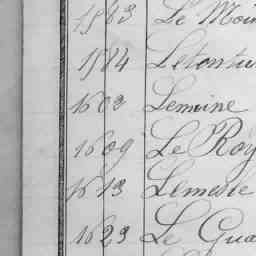 1563 Le Moin
1584 Letontu
1602 Lemoine
1609 Le Roy
1613 Lemesle
1623 Le Gua